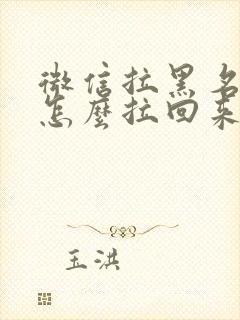 微信拉黑名
怎麼拉回來
玉洪